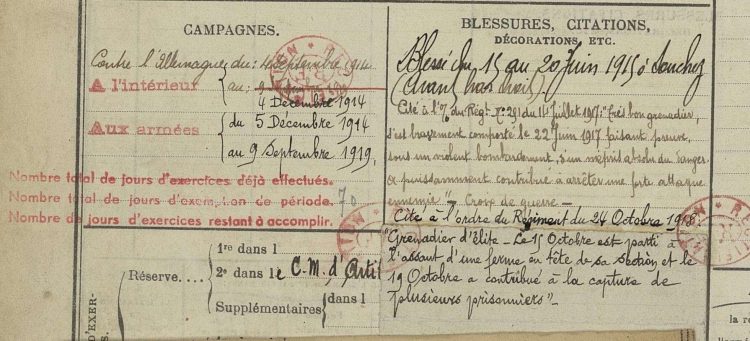 CAMPAGNES.
Contre l'Allemagne du: 4 Septembre 1914
A l'intérieur
au:
4 Décembre 1914
Aux armées
du 5 Décembre 1914
au 9 Septembre 1919,
Nombre total de jours d'exercices déjà effectués.
Nombre total de jours d'exemption de période. 70
Nombre de jours d'exercices restant à accomplir.
1re dans l
Réserve....
2e dans le C.M. d'Arti
Supplémentaires dans l
D'EXER-
BLESSURES, CITATIONS,
DÉCORATIONS, ETC.
Blessé du 15 au 20 Juin 1915 à Souchez
(Avant bras droit).
Cité à l'O/ du Régt n°291 du 11 Juillet 1917: "très bon grenadier,
s'est bravement comporté le 22 Juin 1917 faisant preuve,
sous un violent bombardement, d'un mépris absolu du danger.
a puissamment contribué à arrêter une forte attaque
ennemie" Croix de guerre –
Cité à l'ordre du Régiment du 24 Octobre 1918:
"Grenadier d'élite – Le 15 Octobre est parti à
l'assaut d'une ferme en tête de sa section et le
19 Octobre a contribué à la capture de
plusieurs prisonniers" –
la r